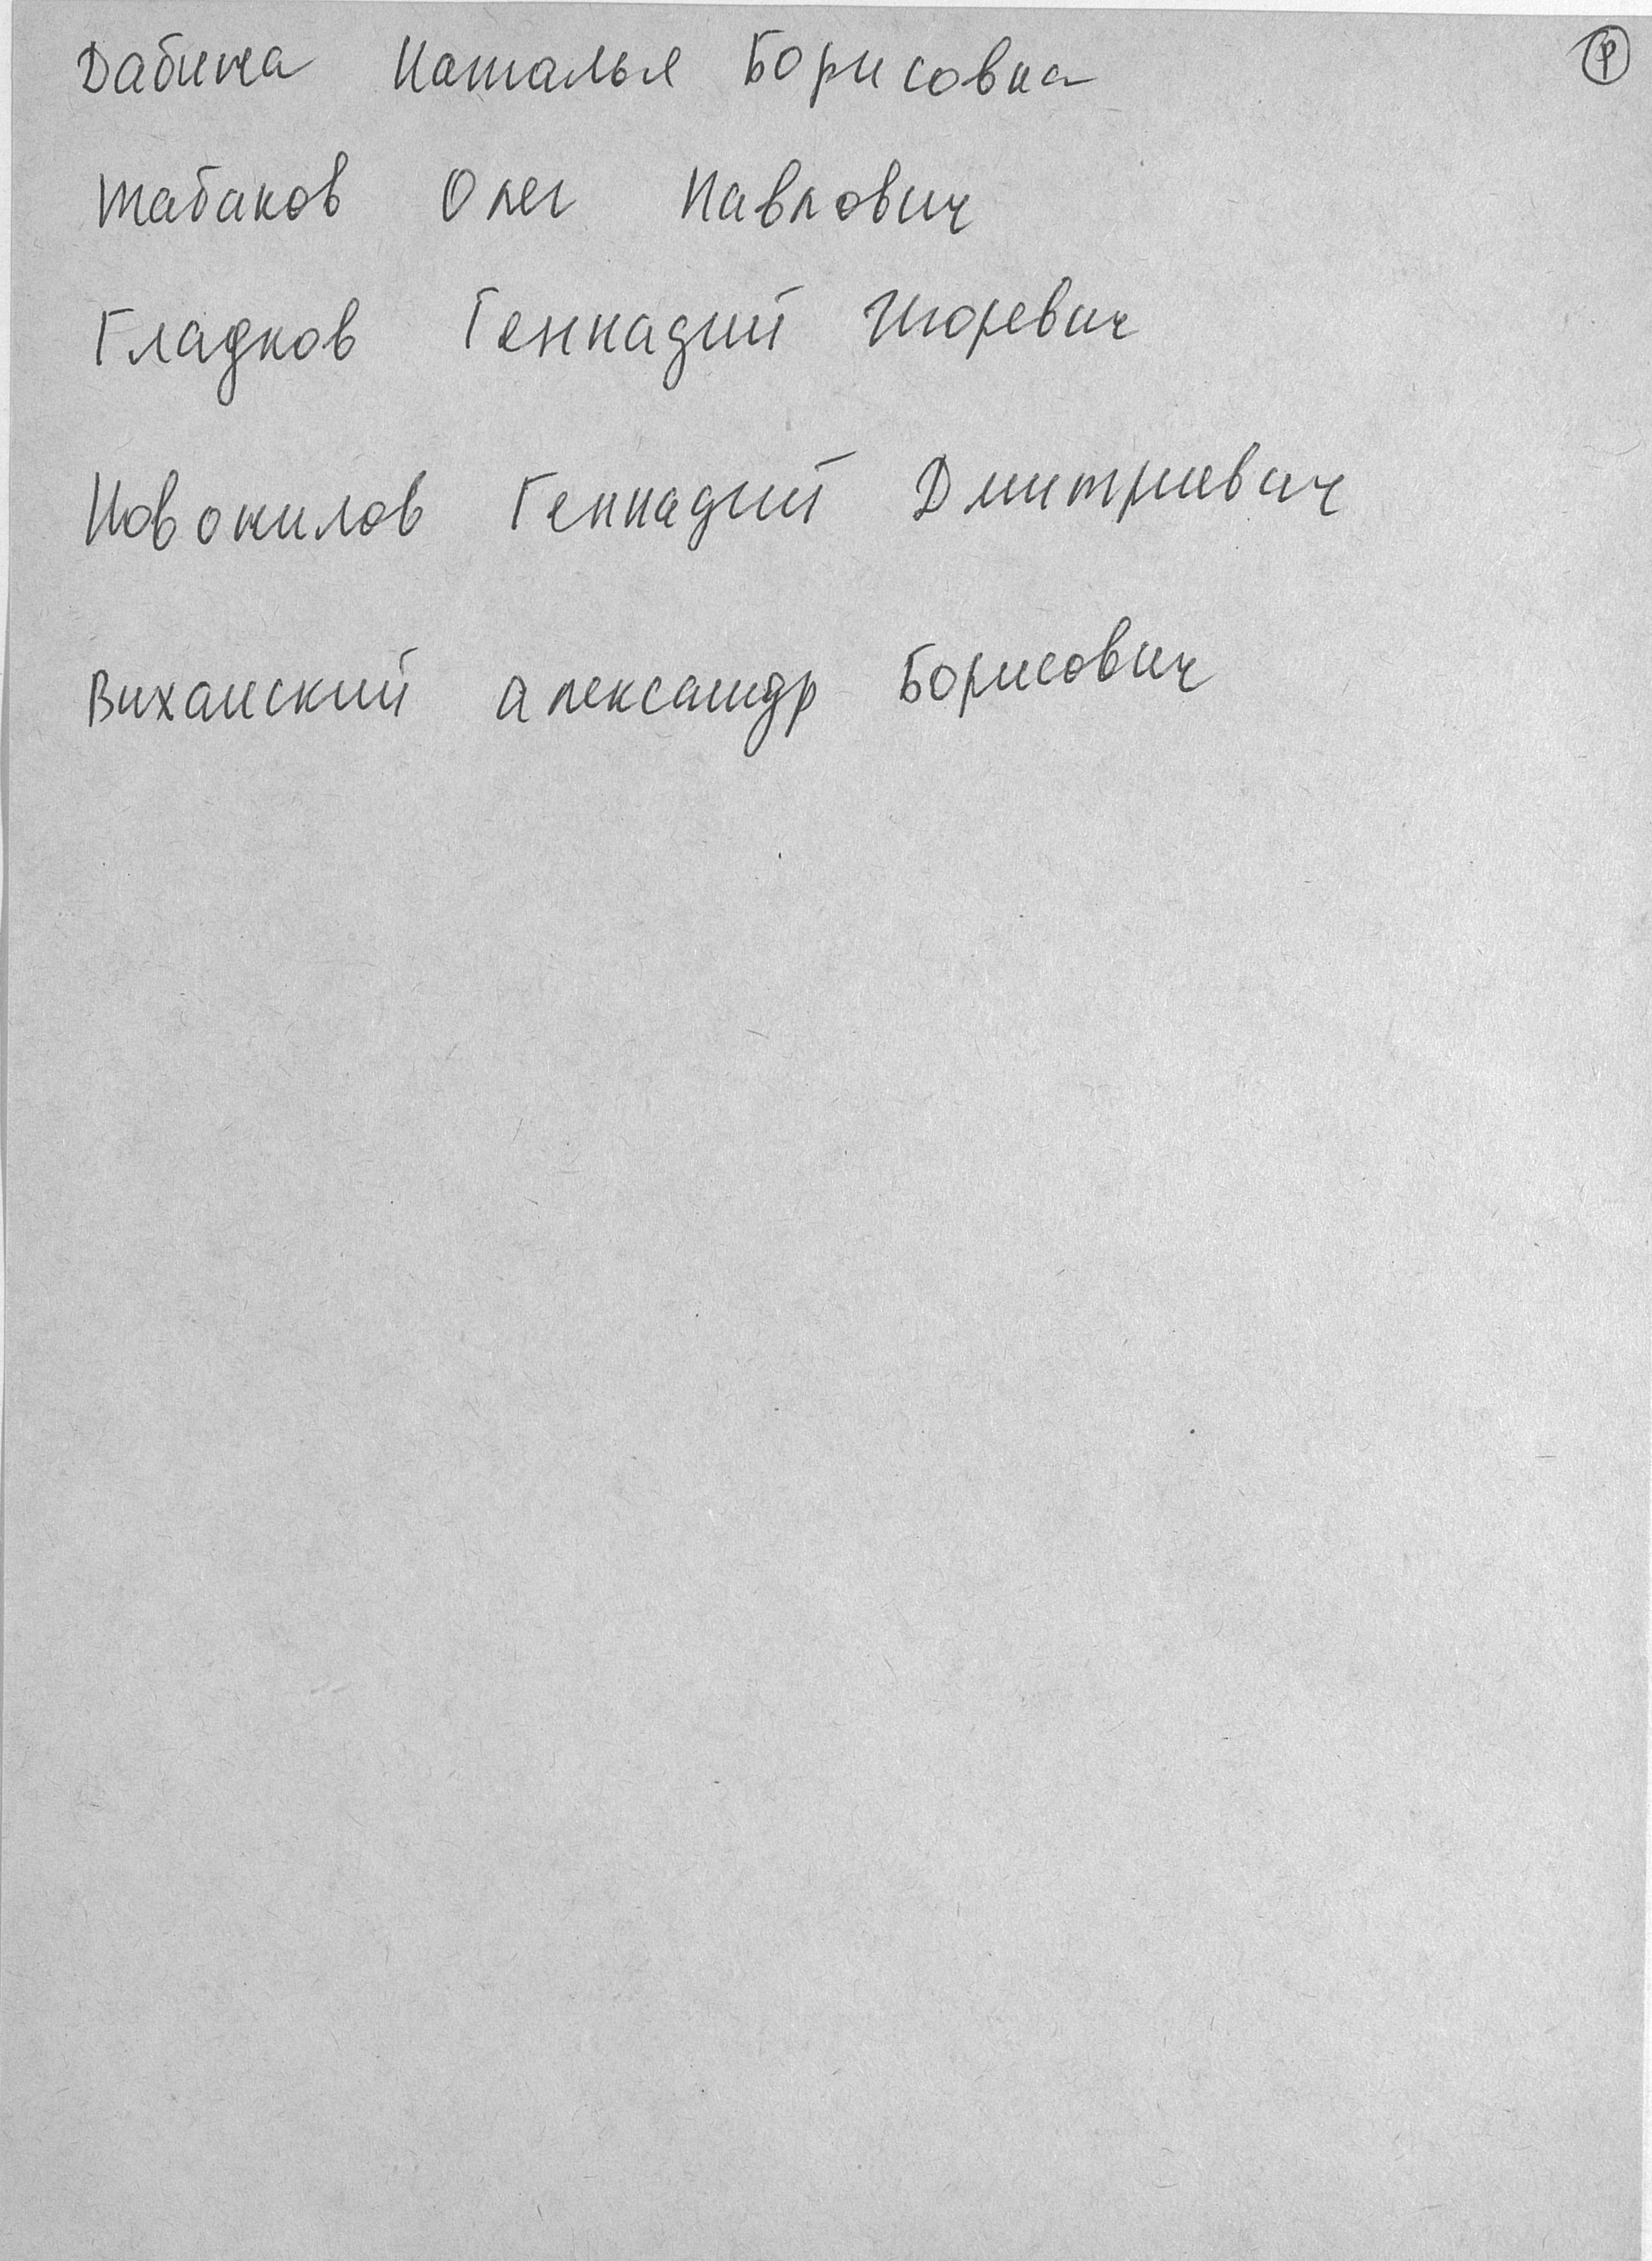 Дабижа Наталья Борисовна
Табаков Олег Павлович
Гладков Геннадий Игоревич
Новожилов Геннадий Дмитриевич
Виханский Александр Борисович